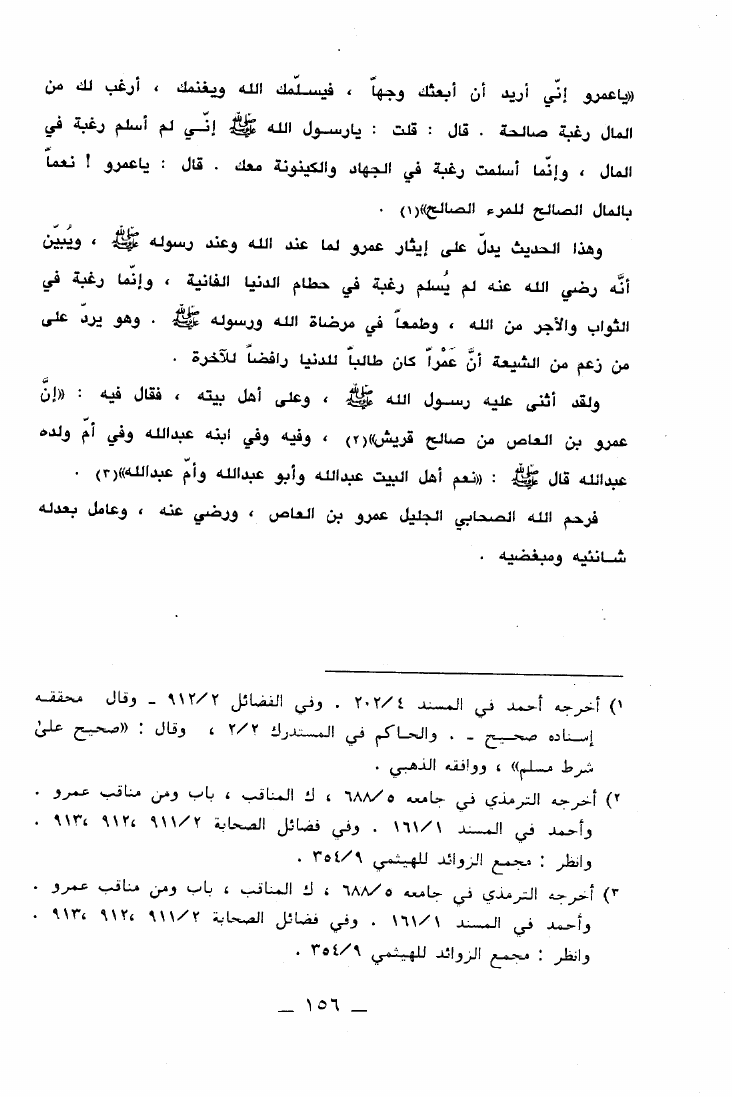 «ياعمرو إنّي أريد أن أبعثك وجهاً ، فيسلّمك الله ويغنمك ، أرغب لك من
المال رغبة صالحة . قال : قلت : يارسول الله ﷺ إنّي لم أسلم رغبة في
المال ، وإنّما أسلمت رغبة في الجهاد والكينونة معك . قال : ياعمرو ! نعماً
بالمال الصالح للمرء الصالح»(١) .
وهذا الحديث يدلّ على إيثار عمرو لما عند الله وعند رسوله ﷺ ، ويُبيّن
أنَّه رضي الله عنه لم يُسلم رغبة في حطام الدنيا الفانية ، وإنّما رغبة في
الثواب والأجر من الله ، وطمعاً في مرضاة الله ورسوله ﷺ . وهو يردّ على
من زعم من الشيعة أنَّ عَمْراً كان طالباً للدنيا رافضاً للآخرة .
ولقد أثنى عليه رسول الله ﷺ ، وعلى أهل بيته ، فقال فيه : «إنَّ
عمرو بن العاص من صالح قريش»(٢) ، وفيه وفي ابنه عبدالله وفي أمّ ولده
عبدالله قال ﷺ : «نعم أهل البيت عبدالله وأبو عبدالله وأمّ عبدالله»(٣) .
فرحم الله الصحابي الجليل عمرو بن العاص ، ورضي عنه ، وعامل بعدله
شانئيه ومبغضيه .
١) أخرجه أحمد في المسند ٢٠٢/٤ . وفي الفضائل ٩١٢/٢ ـ وقال محققه
إسناده صحيح ـ . والحاكم في المستدرك ٢/٢ ، وقال : «صحيح علىٰ
شرط مسلم» ، ووافقه الذهبي .
٢) أخرجه الترمذي في جامعه ٦٨٨/٥ ، ك المناقب ، باب ومن مناقب عمرو .
وأحمد في المسند ١٦١/١ . وفي فضائل الصحابة ٩١١/٢ ،٩١٢ ،٩١٣ .
وانظر : مجمع الزوائد للهيثمي ٣٥٤/٩ .
٣) أخرجه الترمذي في جامعه ٦٨٨/٥ ، ك المناقب ، باب ومن مناقب عمرو .
وأحمد في المسند ١٦١/١ . وفي فضائل الصحابة ٩١١/٢ ،٩١٢ ،٩١٣ .
وانظر : مجمع الزوائد للهيثمي ٣٥٤/٩ .
ـ ١٥٦ ـ